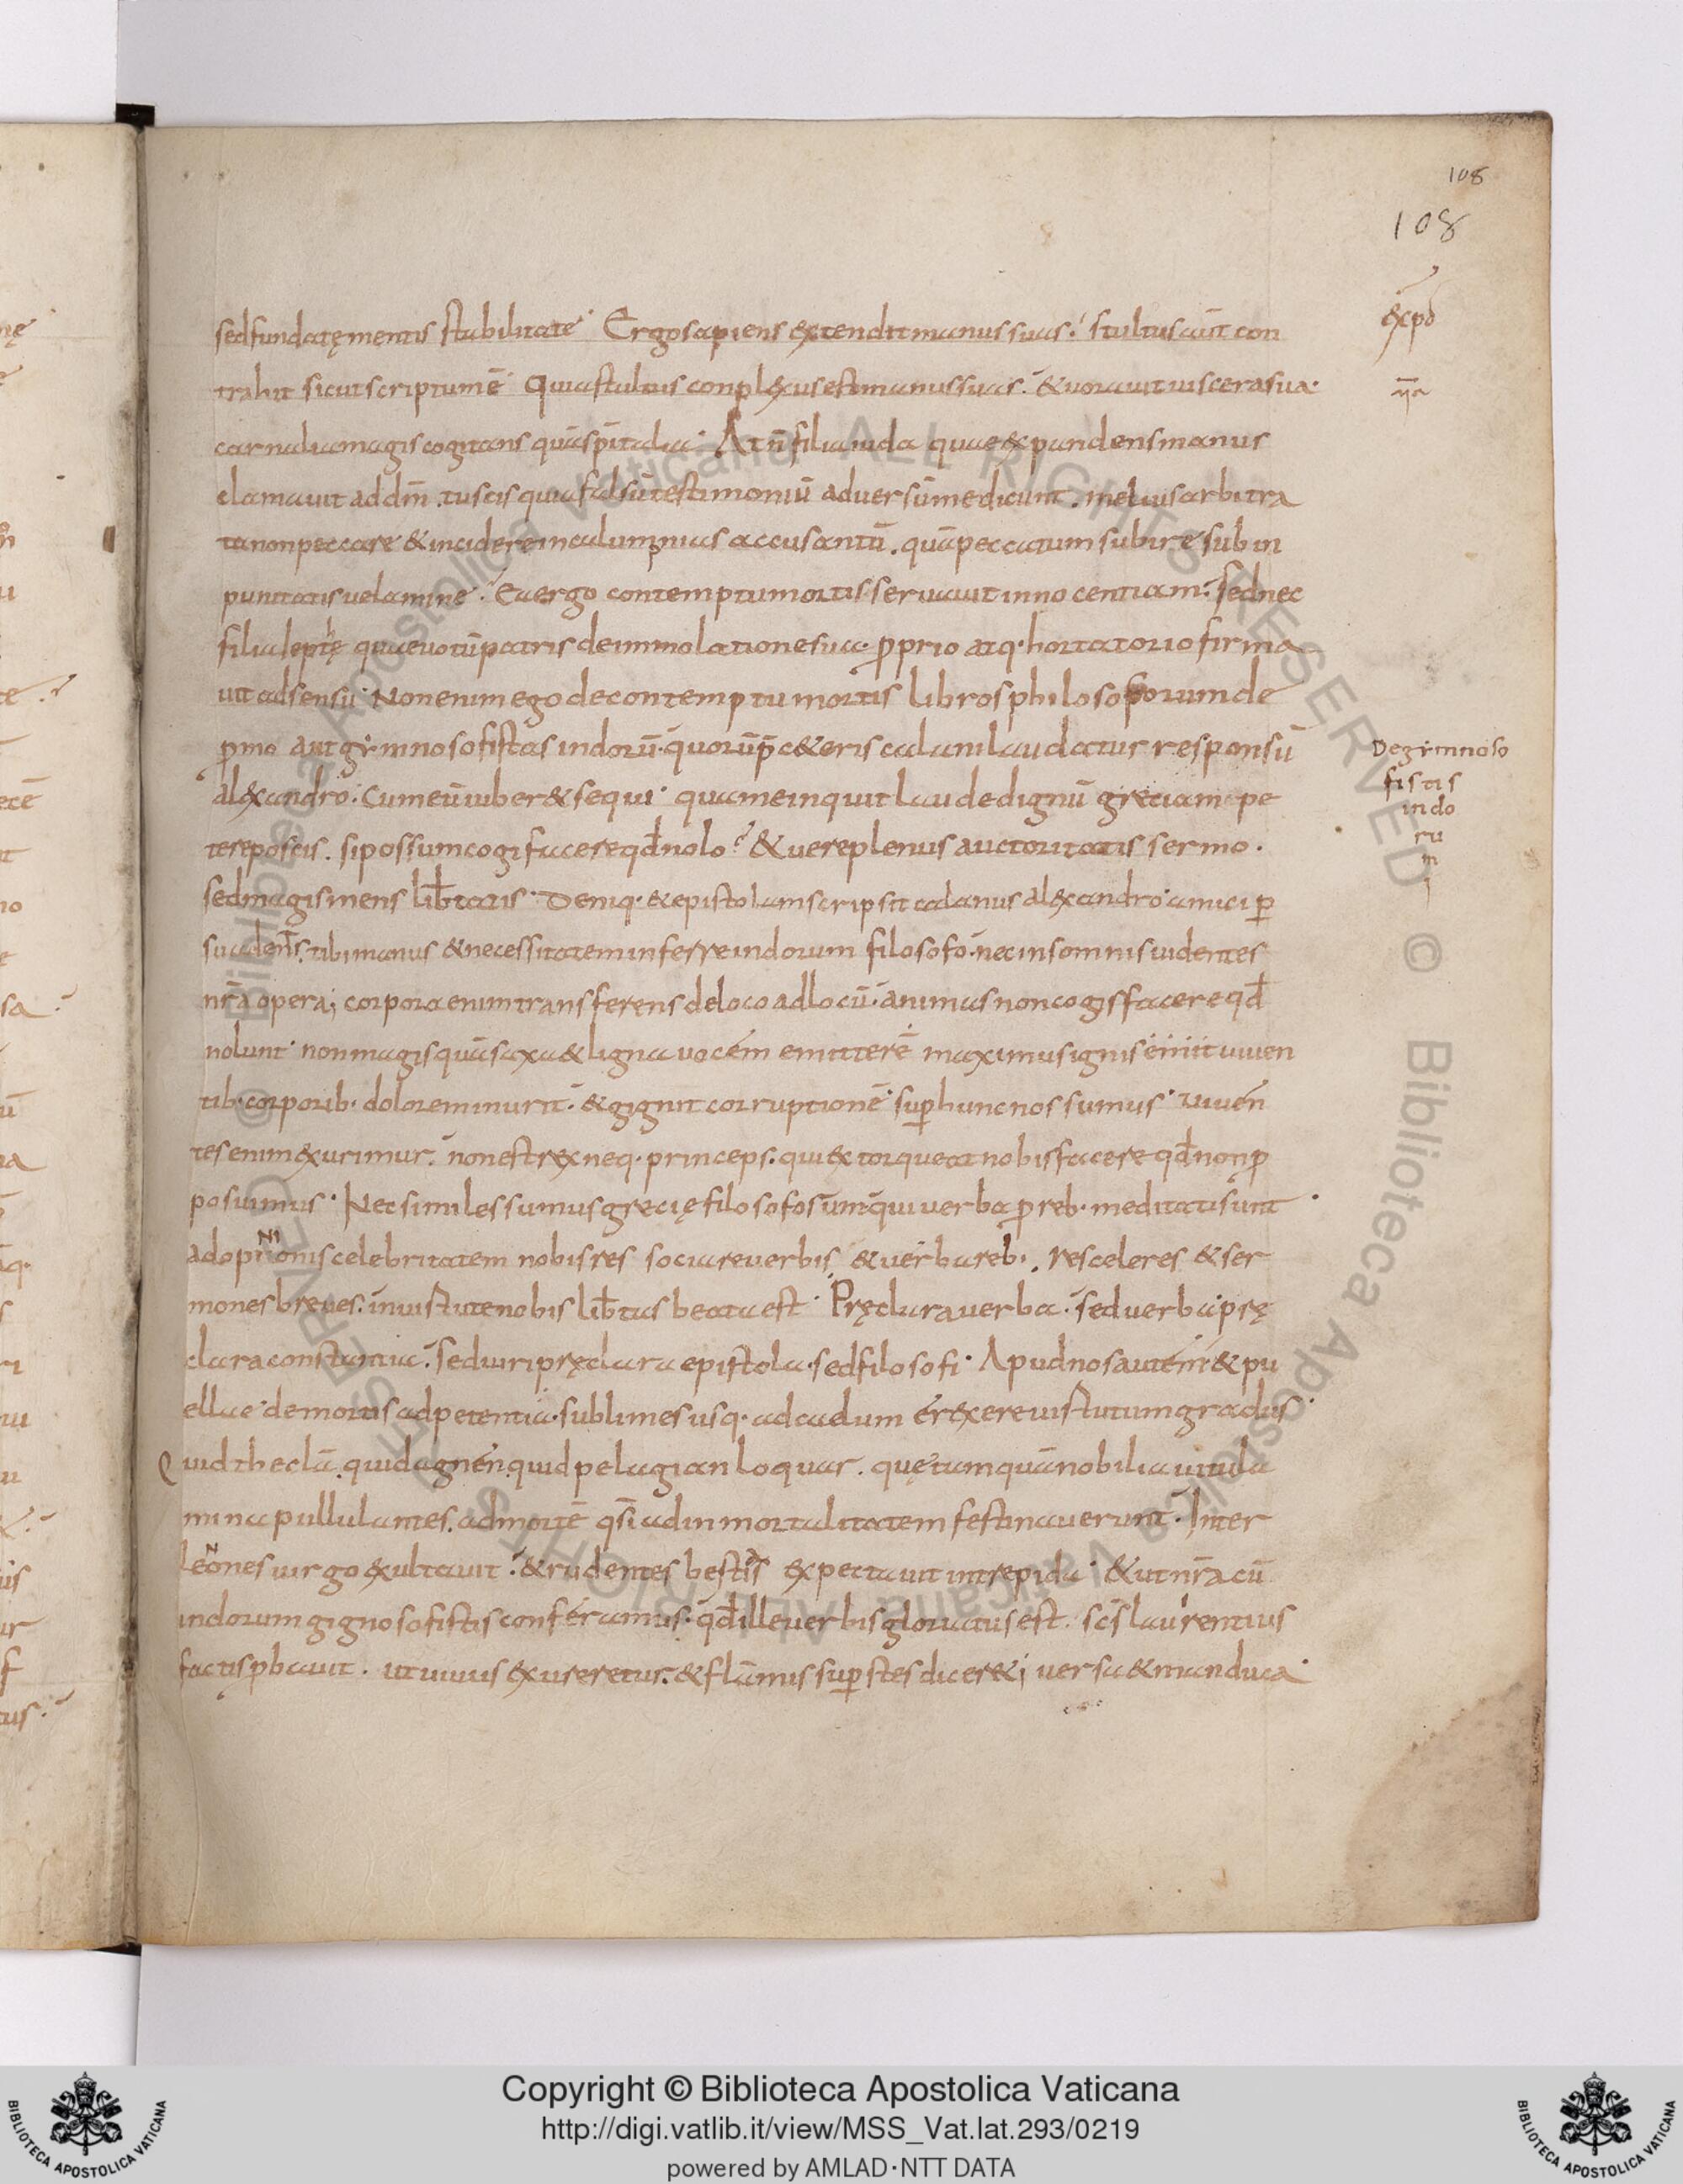 108
108
sed fundatę mentis stabilitate. Ergo sapiens extendit manus suas. stultus aūt con
trahit sicut scriptum ē. Quia stultus conplexus est manus suas. & uorauit uiscera sua.
carnalia magis cogitans quā spītalia. At ñ filia iuda quae expandens manus
clamauit ad dm̄. tu scis quia falsū testimoniū aduersū me dicunt. melius arbitra
ta non peccare & incidere in calumpnias accusantū. quā peccatum subire sub in
punitatis uelamine. Ea ergo contemptu mortis seruauit innocentiam. sed nec
filia ieptę quae uotū patris de immolatione sua. ꝓprio atq. hortatorio firma
uit adsensu. Non enim ego de contemptu mortis libros philosoforum de
ꝓmo aut gymnosofistas indorū. quorū p̄ c&eris calani laudatur responsū
alexandro. Cum eū iuber& sequi. qua me inquit laude dignū greciam pe
tere poscis. si possum cogi facere qđ nolo? & uere plenus auctoritatis sermo.
sed magis mens lib̄tatis. Deniq. & epistolam scripsit calanus alexandro. amici ꝑ
suadent. tibi manus & necessitatem inferre indorum filosofo. nec in somnis uidentes
nr̄a opera; corpora enim transferens de loco ad locū. animas non cogis facere qđ
nolunt. non magis quā saxa & ligna uocem emittere. maximus ignis
tib. corporib. dolorem inurit. & gignit corruptionē. suꝑ hunc nos sumus. uiuen
tes enim exurimur. non est rex neq. princeps. qui extorqueat nobis facere qđ non ꝓ
posuimus. Nec similes sumus gręcię filosofos um̄ qui uerba ꝓ reb. meditati sunt.
ad opinionis celebritatem nobis res socia re uerbis & uerba reb. res celeres & ser
mones breues. in uirtute nobis lib̄tas beata est. Pręclara uerba. sed uerba. prę
clara constantia. sed uiri pręclara epistola. sed filosofi. Apud nos autem & pu
ellae de mortis adpetentia. sublimes usq. ad caelum erexere uirtutum gradus.
Quid theclā. quid agnen. quid pelagian loquar. quę tamquā nobilia uitula
mina pullulantes. ad mortē qsi ad inmortalitatem festinauerunt. Inter
leones uirgo exultauit. & rudentes bestias expectauit intrepida. & ut nr̄a cū
indorum gignosofistis conferamus. qđ ille uerbis gloriatus est. scs̄ laurentius
factis ꝓbauit. ut uiuus exureretur. & flāmis suꝑstes dicer&; uersa & manduca.
Degimnoso
fistis
indo
ru
m
Copyright © Biblioteca Apostolica Vaticana
http://digi.vatlib.it/view/MSS_Vat.lat.293/0219
powered by AMLAD·NTT DATA
BIBLIOTECA APOSTOLICA VATICANA
BIBLIOTECA APOSTOLICA VATICANA
© Biblioteca Apostolica Vaticana ALL RIGHTS RESERVED © Biblioteca Apostolica Vaticana ALL RIGHTS RESERVED